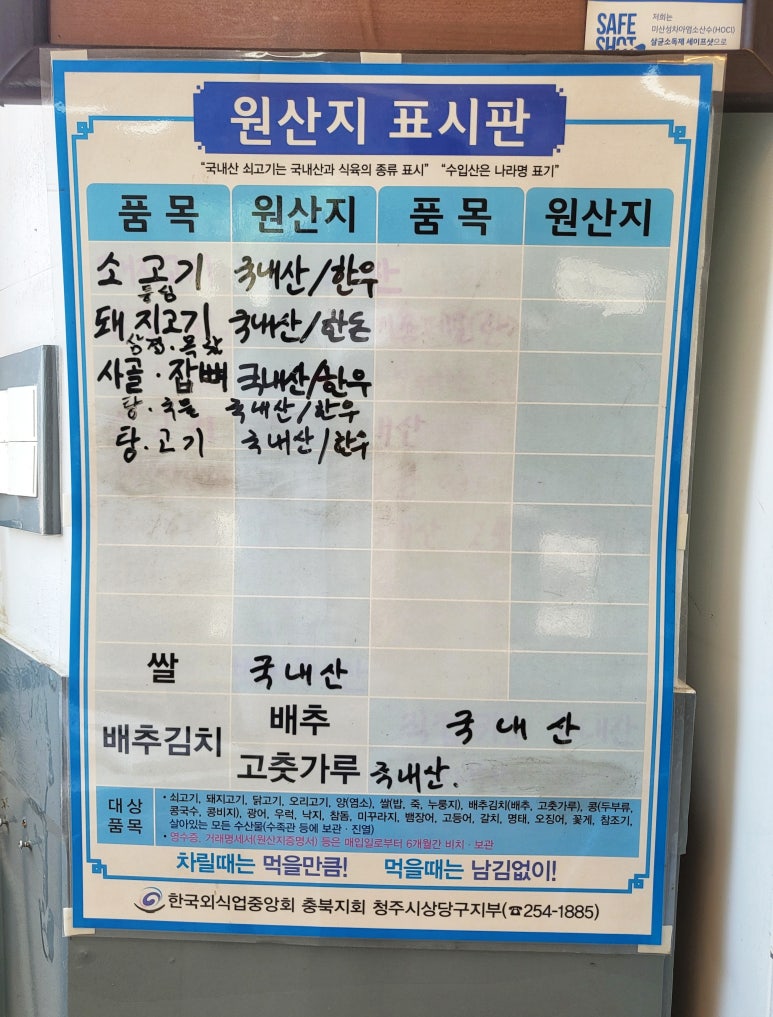 SAFE
SHOT
저희는
미산성차아염소산수(HOCl)
살균소독제 세이프샷으로
원산지 표시판
“국내산 쇠고기는 국내산과 식육의 종류 표시” “수입산은 나라명 표기”
품 목 원산지 품 목 원산지
소 고기 국내산/한우
등심
돼지고기 국내산/한돈
삼겹·목살
사골·잡뼈 국내산/한우
탕·국물 국내산/한우
탕·고기 국내산/한우
쌀 국내산
배추김치 배추 국내산
고춧가루 국내산.
대상 품목
• 쇠고기, 돼지고기, 닭고기, 오리고기, 양(염소), 쌀(밥, 죽, 누룽지), 배추김치(배추, 고춧가루), 콩(두부류,
콩국수, 콩비지), 광어, 우럭, 낙지, 참돔, 미꾸라지, 뱀장어, 고등어, 갈치, 명태, 오징어, 꽃게, 참조기,
살아있는 모든 수산물(수족관 등에 보관·진열)
• 영수증, 거래명세서(원산지증명서) 등은 매입일로부터 6개월간 비치·보관
차릴때는 먹을만큼! 먹을때는 남김없이!
한국외식업중앙회 충북지회 청주시상당구지부(☎254-1885)